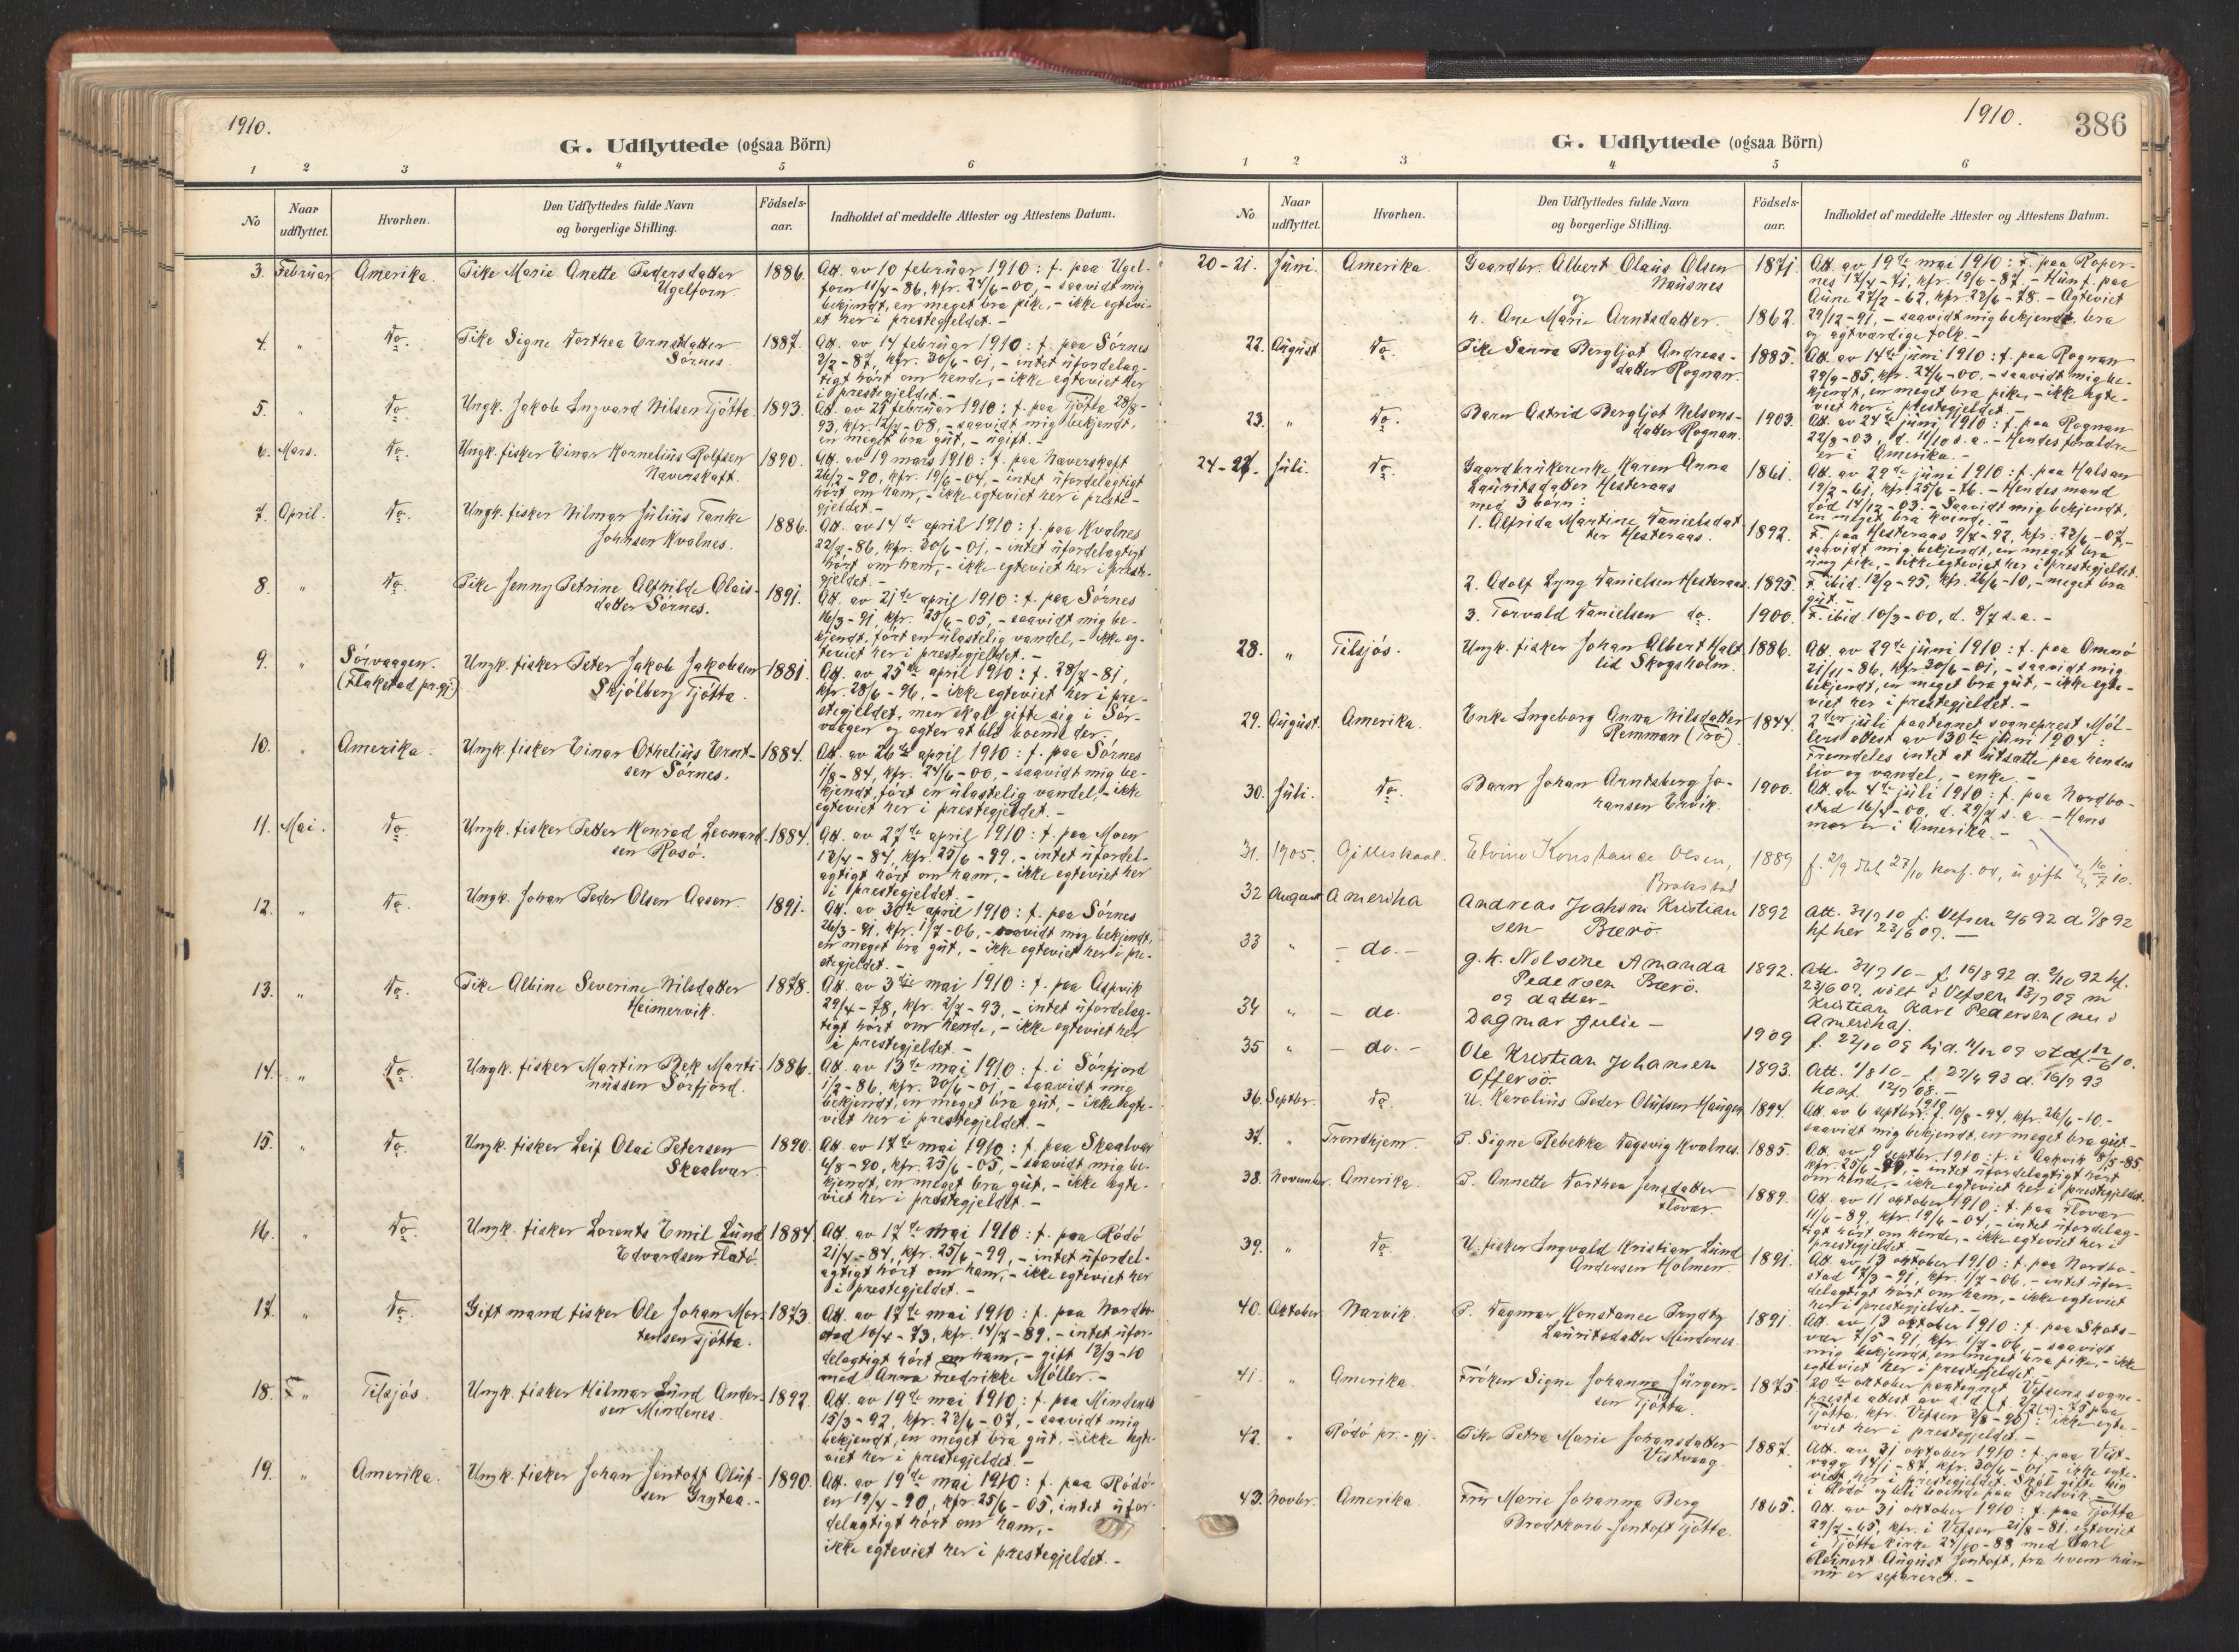 1910.
G. Udflyttede (ogsaa Börn)
1 2 3 4 5 6
No
Naar udflyttet.
Hvorhen.
Den Udflyttedes fulde Navn
og borgerlige Stilling.
Födsels-
aar.
Indholdet af meddelte Attester og Attestens Datum.
3. Februar Amerika. Pike Marie Anette Pedersdatter 1886. Att. av 10 februar 1910: f. paa Ugel-
Ugelforn. forn 11/4-86, kfr. 24/6-00, - saavidt mig
bekjendt, en meget bra pike, - ikke egtevi-
et her i prestegjeldet. -
4. " do. Pike Signe Dorthea Ernstdatter 1887. Att. av 14 februar 1910: f. paa Sörnes
Sörnes. 2/2-87, kfr. 30/6-01, - intet ufordelag-
tigt hört om hende, - ikke egteviet her
i prestegjeldet. -
5. " do. Ungk. Jakob Ingvard Nilsen Tjötta. 1893. Att. av 25 februar 1910: f. paa Tjötta 28/8-
93, kfr. 12/7-08, - saavidt mig bekjendt,
en meget bra gut, - ugift. -
6. Mars. do. Ungk. fisker Einar Kornelius Rolfsen 1890. Att. av 19 mars 1910: f. paa Naverskaft
Naverskaft. 26/2-90, kfr. 19/6-04, - intet ufordelagtigt
hört om ham, - ikke egteviet her i preste-
gjeldet. -
7. April. do. Ungk. fisker Hilmar Julius Tanke 1886. Att. av 14de april 1910: f. paa Kvalnes
Johnsen Kvalnes. 22/7-86, kfr. 30/6-01, - intet ufordelagtigt
hört om ham, - ikke egteviet her i preste-
gjeldet. -
8. " do. Pike Jenny Petrine Alfhilde Olais- 1891. Att. av 21de april 1910: f. paa Sörnes
datter Sörnes. 16/3-91, kfr. 25/6-05, - saavidt mig be-
kjendt, fört en ulastelig vandel, - ikke eg-
teviet her i prestegjeldet. -
9. " Sörvaagen. Ungk. fisker Peter Jakob Jakobsen 1881. Att. av 25de april 1910: f. 28/7-81,
(Flakstad pr.gj.) Skjölberg Tjötta. kfr. 28/6-96, - ikke egteviet her i pre-
stegjeldet, men skal gifte sig i Sör-
vaagen og agter at bli boende der. -
10. " Amerika. Ungk. fisker Einar Othelius Ernt- 1884. Att. av 26de april 1910: f. paa Sörnes
sen Sörnes. 1/8-84, kfr. 24/6-00, - saavidt mig be-
kjendt, fört en ulastelig vandel, - ikke
egteviet her i prestegjeldet. -
11. Mai. do. Ungk. fisker Petter Konrad Leonard- 1884. Att. av 27de april 1910: f. paa Moen
sen Rosö. 12/4-84, kfr. 25/6-99, - intet ufordel-
agtigt hört om ham, - ikke egteviet her
i prestegjeldet. -
12. " do. Ungk. Johan Peder Olsen Aasen. 1891. Att. av 30te april 1910: f. paa Sörnes
26/3-91, kfr. 1/7-06, - saavidt mig bekjendt,
en meget bra gut, - ikke egteviet her i pre-
stegjeldet. -
13. " do. Pike Albine Severine Nilsdatter 1878. Att. av 3die mai 1910: f. paa Aspvik
Heimervik. 29/4-78, kfr. 2/7-93, - intet ufordelag-
tigt hört om hende, - ikke egteviet her
i prestegjeldet. -
14. " do. Ungk. fisker Martin Bek Marti- 1886. Att. av 13de mai 1910: f. i Sörfjord
nussen Sörfjord. 1/2-86, kfr. 30/6-01, - saavidt mig
bekjendt, en meget bra gut, - ikke egte-
viet her i prestegjeldet. -
15. " do. Ungk. fisker Leif Olai Petersen 1890. Att. av 17de mai 1910: f. paa Skaalvar
Skaalvar. 4/8-90, kfr. 25/6-05, - saavidt mig be-
kjendt, en meget bra gut, - ikke egte-
viet her i prestegjeldet. -
16. " do. Ungk. fisker Lorents Emil Lund 1884. Att. av 17de mai 1910: f. paa Rödö
Edvardsen Flatö. 21/4-84, kfr. 25/6-99, - intet ufordel-
agtigt hört om ham, - ikke egteviet her
i prestegjeldet. -
17. " do. Gift mand fisker Ole Johan Mor- 1873. Att. av 17de mai 1910: f. paa Nordbo-
tensen Tjötta. stad 10/4-73, kfr. 14/7-89, - intet ufor-
delagtigt hört om ham, - gift 12/3-10
med Anna Fredrikke Möller. -
18. " Tilsjös. Ungk. fisker Hilmar Lund Ander- 1892. Att. av 19de mai 1910: f. paa Mindenes
sen Mindenes. 15/3-92, kfr. 22/6-07, - saavidt mig
bekjendt, en meget bra gut, - ikke egte-
viet her i prestegjeldet. -
19. " Amerika. Ungk. fisker Johan Jentoft Oluf- 1890. Att. av 19de mai 1910: f. paa Rödö-
sen Grytaa. - en 19/4-90, kfr. 25/6-05, intet ufor-
delagtigt hört om ham, -
ikke egteviet her i prestegjeldet. -
1910. 386
G. Udflyttede (ogsaa Börn)
1 2 3 4 5 6
No
Naar udflyttet.
Hvorhen.
Den Udflyttedes fulde Navn
og borgerlige Stilling.
Födsels-
aar.
Indholdet af meddelte Attester og Attestens Datum.
20-21. Juni. Amerika. Gaardbr. Albert Olaus Olsen 1871. Att. av 19de mai 1910: F. paa Roper-
Nausnes nes 17/4-71, kfr. 19/6-87. - Hun f. paa
Aune 27/2-62, kfr. 22/6-78. - Egteviet
h. Ane Marie Arntsdatter. 1862. 29/12-91, - saavidt mig bekjendt, bra
og agtværdige folk. -
22. August do. Pike Sanna Bergljot Andreas- 1885. Att. av 14de juni 1910: f. paa Rognan
datter Rognan. 29/9-85, kfr. 24/6-00. - saavidt mig be-
kjendt, en meget bra pike, - ikke egte-
viet her i prestegjeldet. -
23. " do. Barn Astrid Bergljot Nelsons- 1903. Att. av 24de juni 1910: f. paa Rognan
datter Rognan. 22/8-03, d. 11/10 s.a. - Hendes forældre
er i Amerika. -
24-27. Juli. do. Gaardbrukerenke Karen Anna 1861. Att. av 29de juni 1910: f. paa Halsan
Lauritsdatter Hesteraas 19/2-61, kfr. 25/6-76. - Hendes mand
med 3 börn: död 14/12-03. - Saavidt mig bekjendt,
en meget bra kvinde. -
1. Alfrida Martine Danielsdat- 1892. F. paa Hesteraas 9/7-92, kfr. 22/6-07, -
ter Hesteraas. saavidt mig bekjendt, en meget bra
ung pike, - ikke egteviet her i prestegjeldet.
2. Adolf Lyng Danielsen Hesteraas. 1895. F. ibid. 12/9-95, kfr. 26/6-10, - meget bra
gut. -
3. Torvald Danielsen do. 1900. F. ibid. 10/3-00, d. 8/7 s.a. -
28. " Tilsjös. Ungk. fisker Johan Albert Halt- 1886. Att. av 29de juni 1910: f. paa Omnö
lid Skogsholm. 21/11-86, kfr. 30/6-01, - saavidt mig
bekjendt, en meget bra gut, - ikke egte-
viet her i prestegjeldet. -
29. August. Amerika. Enke Ingeborg Anna Nilsdatter 1844. 2den juli paategnet sogneprest Möl-
Remman (Trö). lers attest av 30te juni 1904:
Fremdeles intet at utsætte paa hendes
liv og vandel, - enke. -
30. Juli. do. Barn Johan Arntsberg Jo- 1900. Att. av 4de juli 1910: f. paa Nordbo-
hansen Ervik. stad 16/4-00, d. 29/7 s.a. - Hans
mor er i Amerika. -
31. 1905. Gilleskaal. Elvine Konstance Olsen, 1889 f. 2/9 döbt 27/10 konf. 04, ugift
Brokstad
32 August Amerika Andreas Joahsm Kristian 1892 Att. f. Vefsen 2/6 92 d. 7/8 92
sen Bærö. kf her 23/6 07. -
33 " - do. - g.k. Nolsine Amanda 1892. Att. f. 16/8 92 d. 2/10 92 kf.
Pedersen Bærö. 23/6 07. viet i Vefsen 13/7 09 m
og datter - Kristian Karl Pedersen (nu i
Amerika).
34 " - do. Dagmar Julie - 1909 f. 22/10 09 hjd. 11/12 09
35 " - do. - Ole Kristian Johansen 1893. Att. 1/8 10 - f. 22/4 93 d. 16/7 93
Offersö. konf. 12/7 08. -
36. Septbr. do. U. Karolius Peder Olufsen Haugen 1894. Att. av 6 septbr. 1910 f. 10/8-94, kfr. 26/6-10. -
saavidt mig bekjendt, en meget bra gut -
37. " Trondhjem P. Signe Rebekka Dagsvig Kvalnes. 1885. Att. av 9 septbr. 1910: f. i Aakvik 8/5-85,
kfr. 25/6-99, - intet ufordelagtigt hört
om hende, - ikke egteviet her i prestegjeldet.
38. November. Amerika. P. Annette Dorthea Jensdatter 1889. Att. av 11 oktober 1910: f. paa Flovær
Flovær. 11/6-89, kfr. 19/6-04, - intet ufordelag-
tigt hört om hende, - ikke egteviet her i
prestegjeldet. -
39. " do. U. fisker Ingvald Kristian Lund 1891. Att. av 13 oktober 1910: f. paa Nordbo-
Andersen Holmen. stad 17/3-91, kfr. 1/7-06, - intet ufor-
delagtigt hört om ham, - ikke egteviet
her i prestegjeldet. -
40. Oktober Narvik. P. Dagmar Konstance Pryds 1891. Att. av 13 oktober 1910: f. paa Skots-
Lauritsdatter Mindenes. vær 7/5-91, kfr. 1/7-06, - saavidt
mig bekjendt, en meget bra pike, - ikke
egteviet her i prestegjeldet. -
41. " Amerika. Fröken Signe Johanna Jürgen- 1875. 20de oktober paategnet Vefsens sogne-
sen Tjötta. prests attest av s.d. (f. 75 paa
Tjötta, kfr. Vefsen 3/8-90): ikke egte-
viet her i prestegjeldet. -
42. " Rödö pr.-gj. Pike Petra Marie Johansdatter 1887. Att. av 31 oktober 1910: f. paa Vist-
Vistvaag. vaag 14/1-87, kfr. 30/6-01 - ikke egte-
viet her i prestegjeldet. Skal gifte sig
i Rödö og bli boende paa -
43. Novbr. Amerika. Fru Marie Johanna Berg 1865. Att. av 31 oktober 1910: f. paa Tjötta
Brodtkorb Jentoft Tjötta. 29/7-65, kfr. i Vefsen 21/8-81. egteviet
i Tjötta kirke 24/10-88 med Carl
Reinert August Jentoft, fra hvem hun
nu er separeret. -